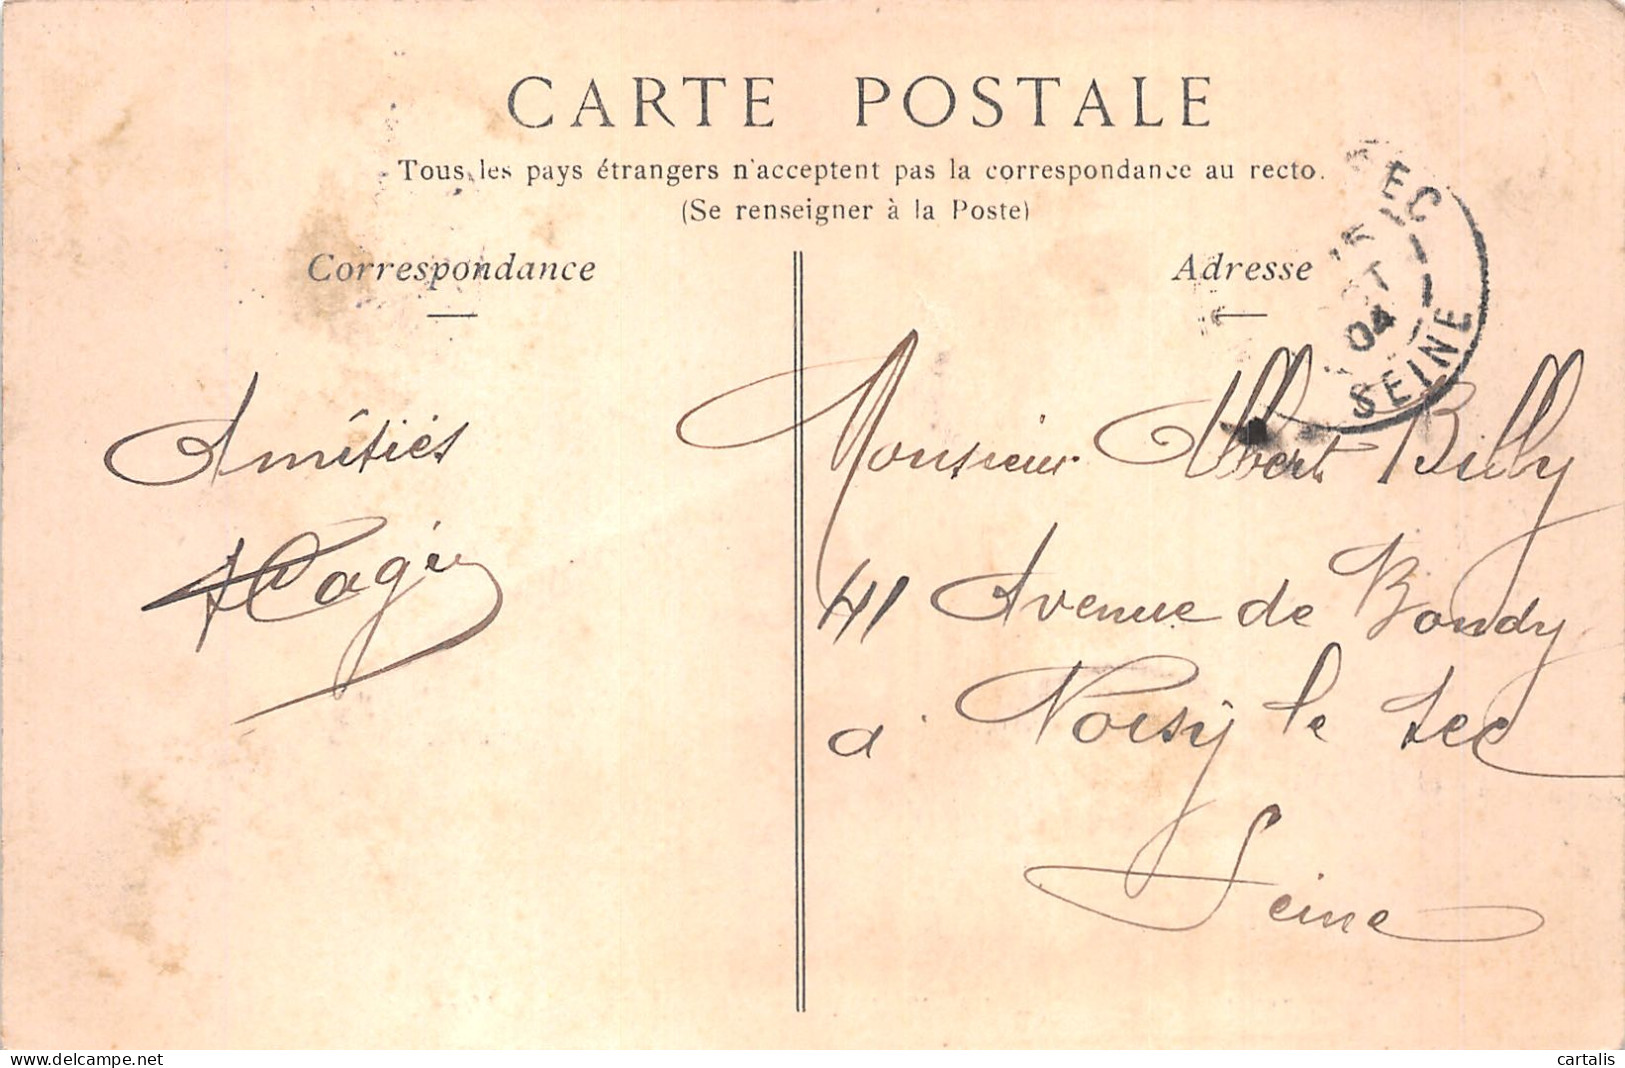 CARTE POSTALE
Tous les pays étrangers n'acceptent pas la correspondance au recto.
(Se renseigner à la Poste)
Correspondance
Amitiés
Adresse
SEC
04
SEINE
Monsieur Albert Billy
41 Avenue de Bondy
a Noisy le Sec
Seine
www.delcampe.net
cartalis